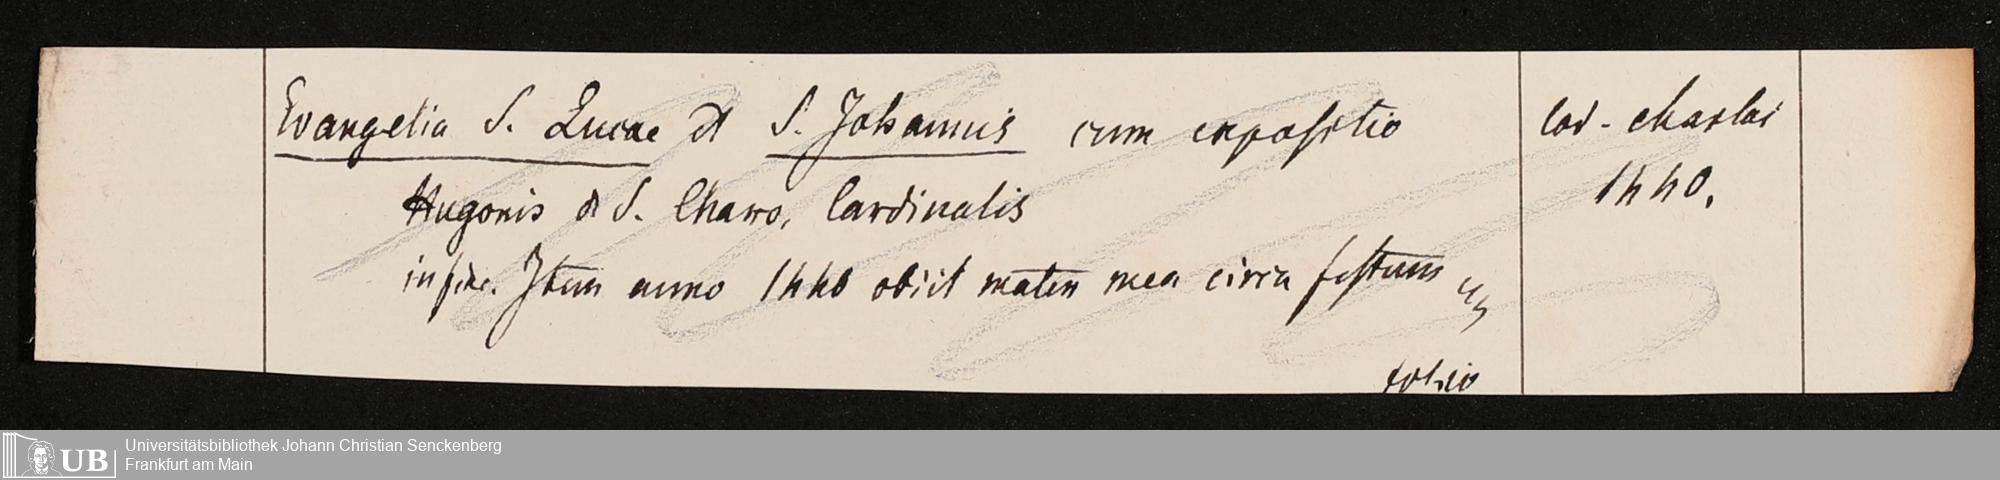 Evangelia S. Lucae et S. Johannis cum expositio
Hugonis de S. Charo, Cardinalis
in fine. Item anno 1440 obiit mater mea circa festum
folio
Cod. chartac
1440.
Universitätsbibliothek Johann Christian Senckenberg
Frankfurt am Main
UB